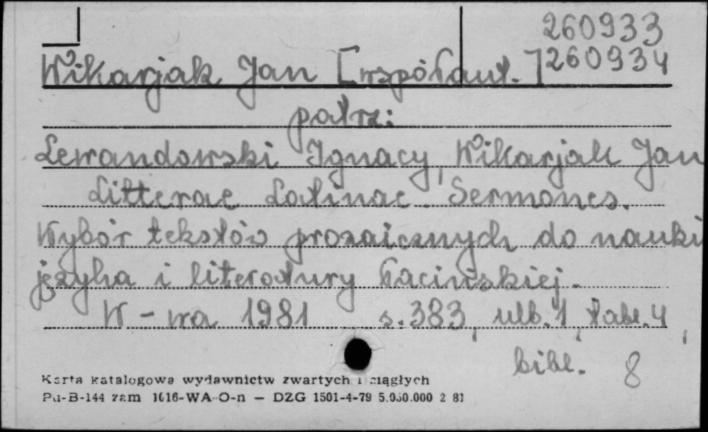 260933
Wikarjak Jan [współaut.] 260934
patrz:
Lewandowski Ignacy, Wikarjak Jan
Litterae Latinae Sermones.
Wybór tekstów prozaicznych do nauki
języka i literatury łacińskiej.
W-wa 1981 s. 383, ulb. 1, tabl. 4,
bibl. 8
Karta katalogowa wydawnictw zwartych i ciągłych
Pu-B-144 zam 1616-WA-O-n — DZG 1501-4-79 5.050.000 2 81